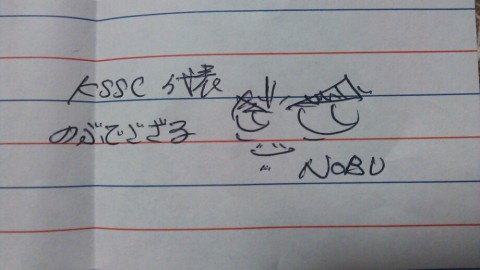 KSSC 代表
のぶでござる
NOBU